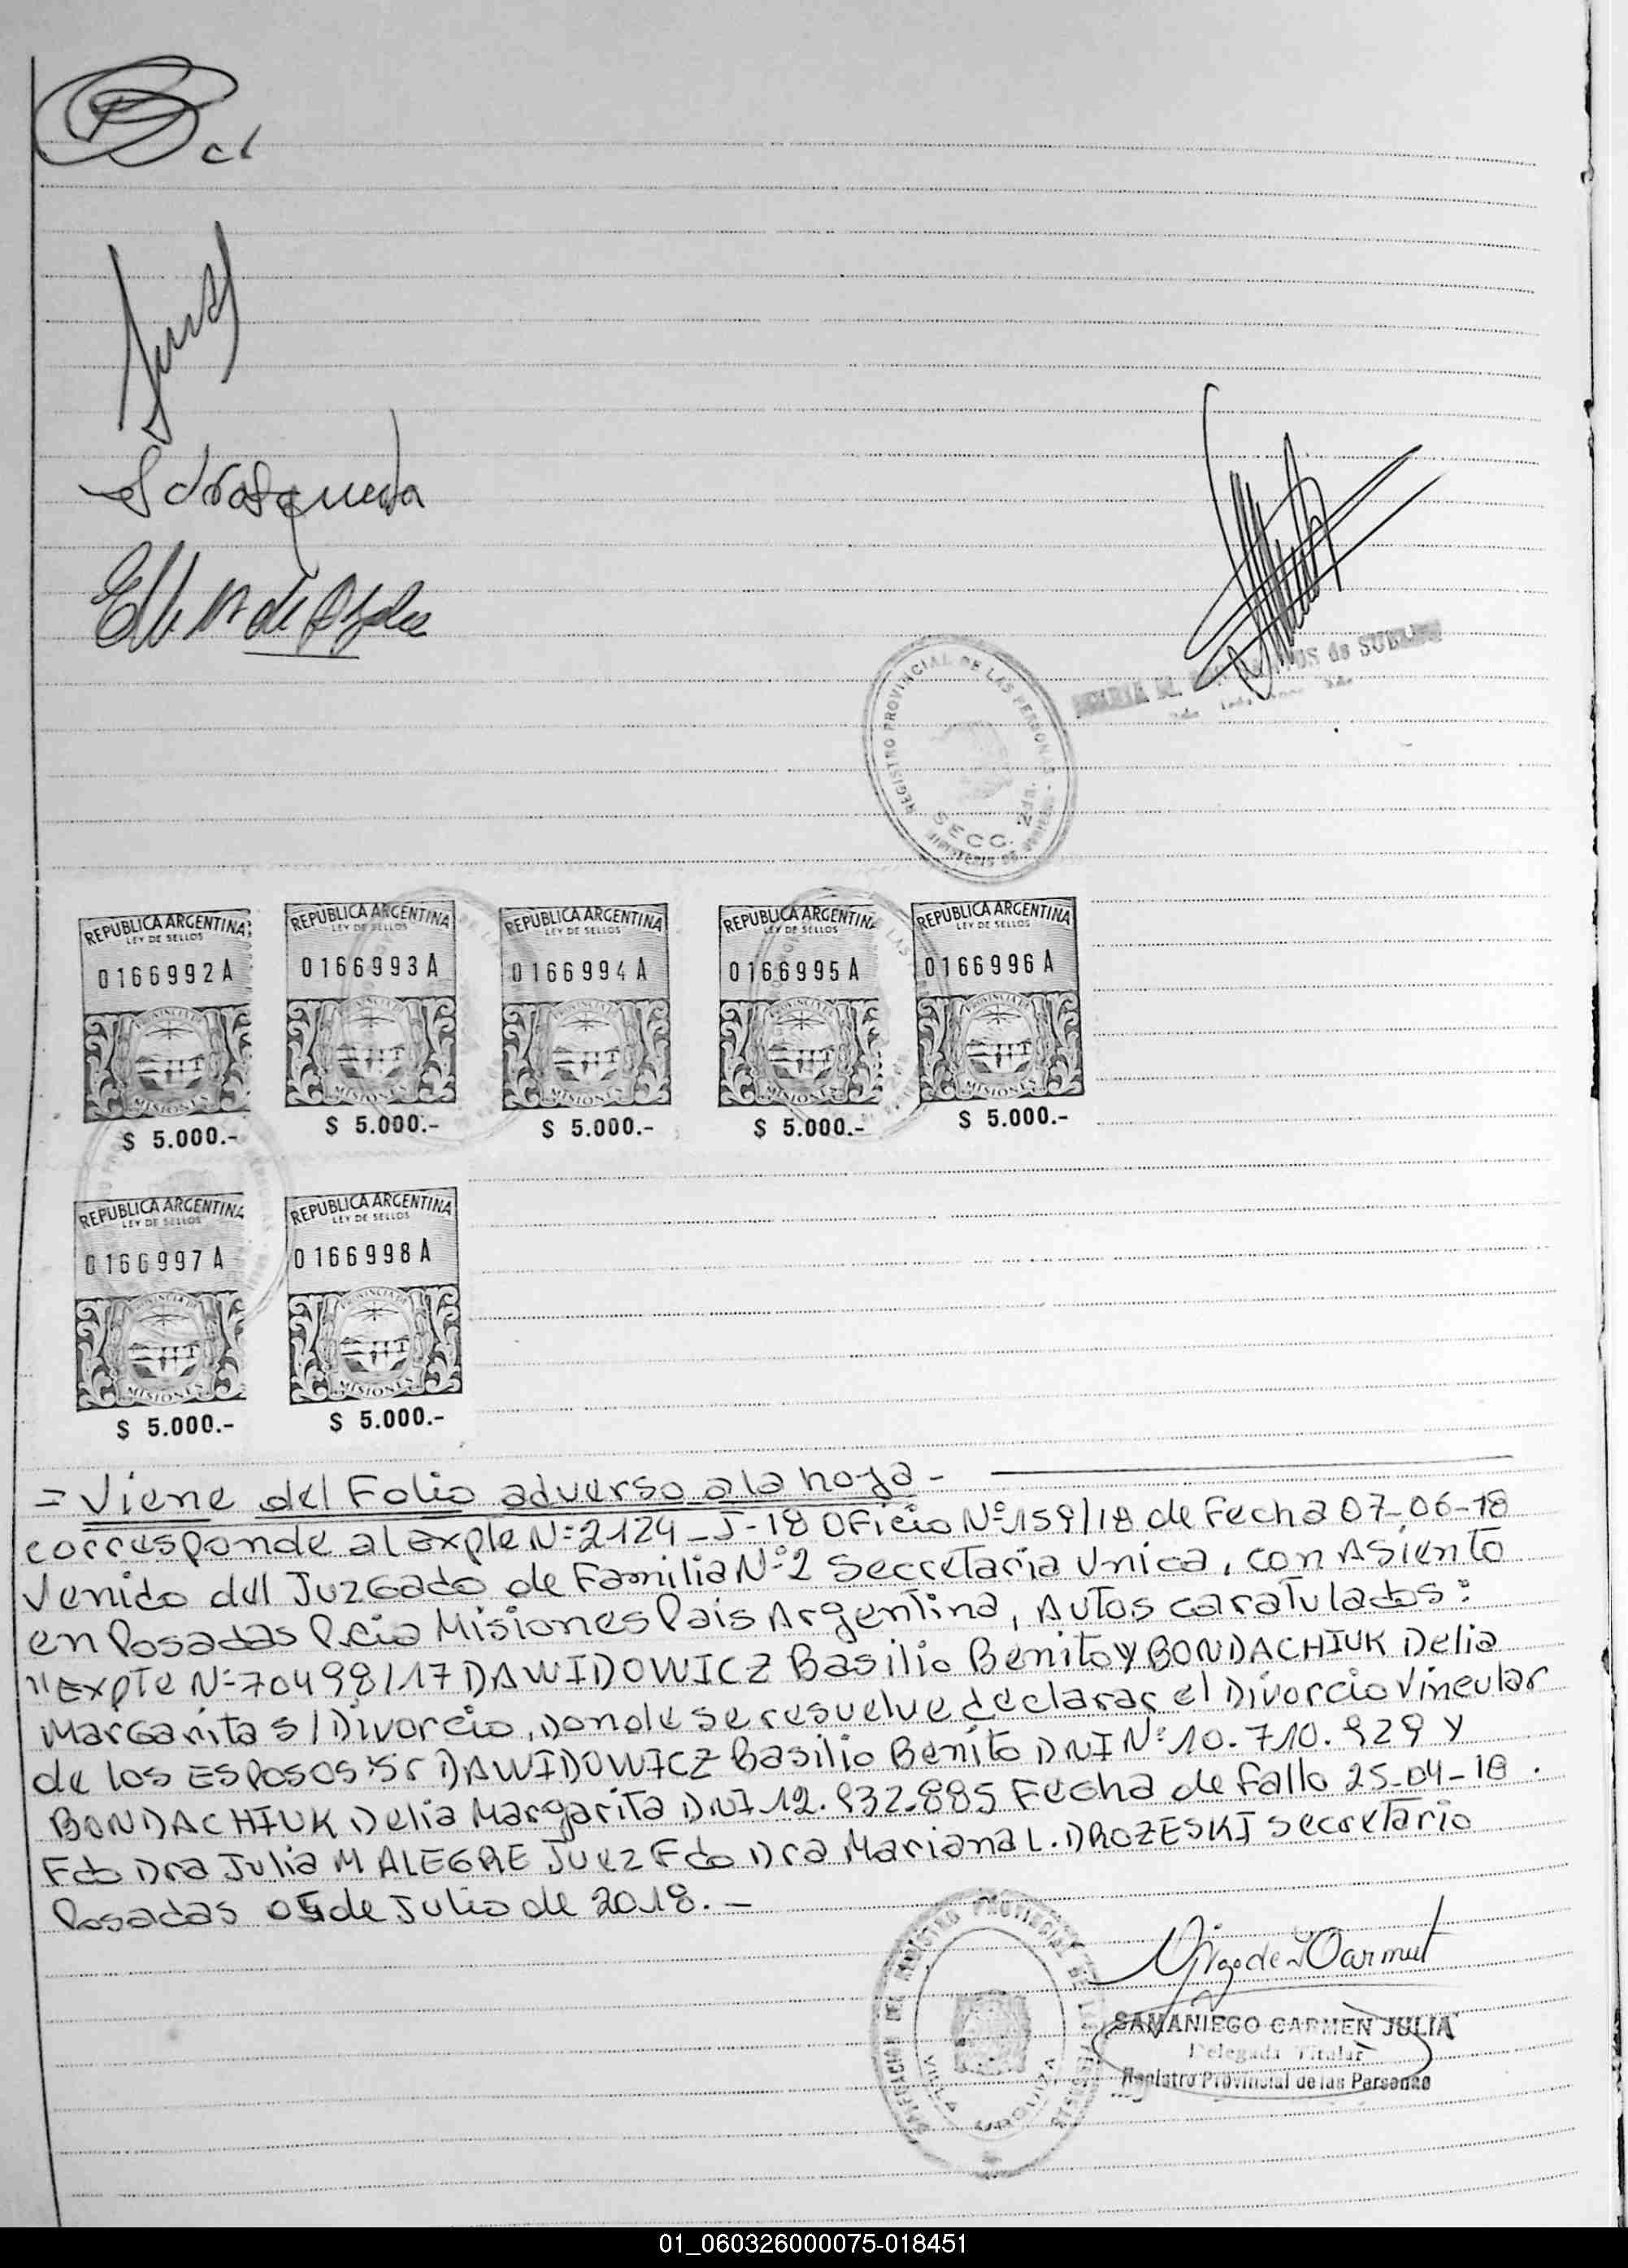 REGISTRO PROVINCIAL DE LAS PERSONAS
SECC. 2da.
de SUBE
REPUBLICA ARGENTINA
LEY DE SELLOS
0166992A
PROVINCIA DE
MISIONES
$ 5.000.-
REPUBLICA ARGENTINA
LEY DE SELLOS
0166993A
MISIONES
$ 5.000.-
REPUBLICA ARGENTINA
LEY DE SELLOS
0166994A
PROVINCIA DE
MISIONES
$ 5.000.-
REPUBLICA ARGENTINA
LEY DE SELLOS
0166995A
MISIONES
$ 5.000.-
REPUBLICA ARGENTINA
LEY DE SELLOS
0166996A
MISIONES
$ 5.000.-
REPUBLICA ARGENTINA
LEY DE SELLOS
0166997A
PROVINCIA DE
MISIONES
$ 5.000.-
REPUBLICA ARGENTINA
LEY DE SELLOS
0166998A
PROVINCIA DE
MISIONES
$ 5.000.-
= Viene del Folio adverso a la hoja -
corresponde al expte Nº 2124-J-18 Oficio Nº 159/18 de Fecha 07-06-18
Venido del Juzgado de Familia Nº 2 Secretaria Unica, con Asiento
en Posadas Pcia Misiones Pais Argentina, Autos caratulados:
"Expte Nº 70498/17 DAWIDOWICZ Basilio Benito y BONDACHIUK Delia
Margarita S/ Divorcio, Donde se resuelve declarar el Divorcio Vincular
de los Esposos: Sr DAWIDOWICZ Basilio Benito DNI Nº 10.710.929 y
BONDACHIUK Delia Margarita DNI 12.932.885 Fecha de fallo 25-04-18.
Fdo Dra Julia M ALEGRE Juez Fdo Dra Mariana L. DROZESKI Secretario
Posadas 05 de Julio de 2018.-
SAMANIEGO CARMEN JULIA
Delegada Titular
Registro Provincial de las Personas
01_060326000075-018451